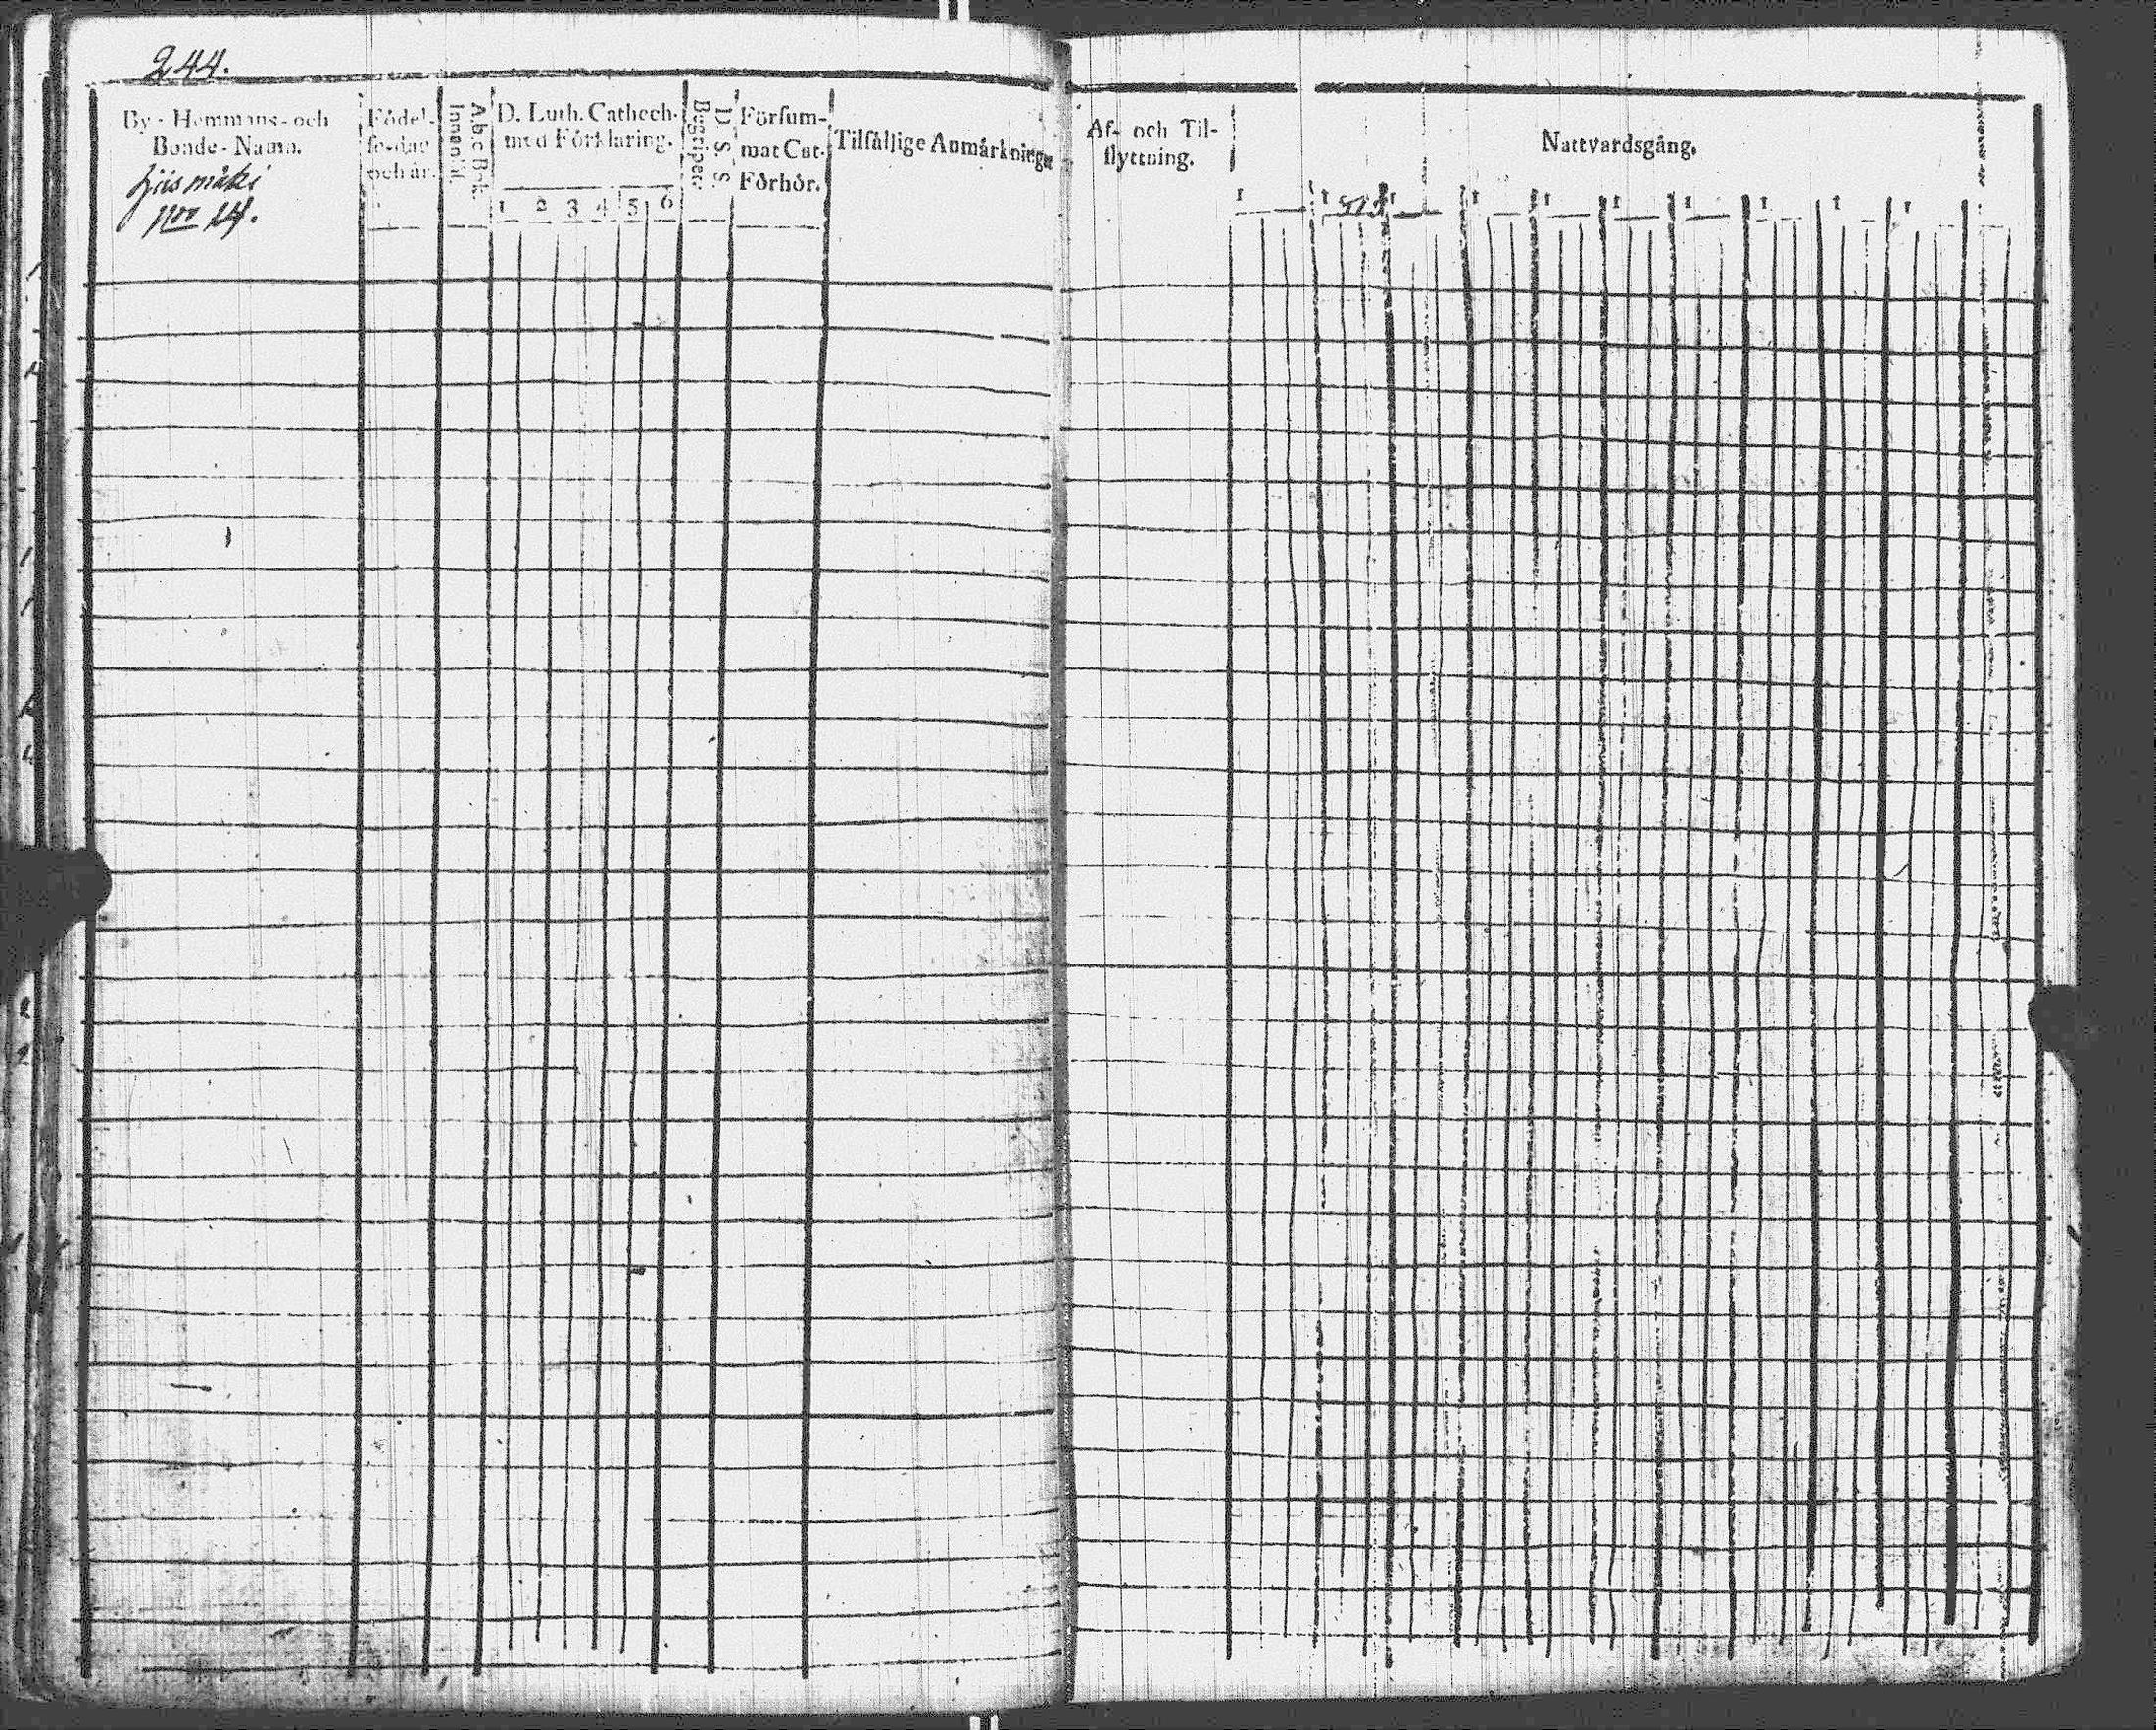 244.
By - Hemmans - och
Bonde - Namn.
Födel-
se-dag
och år.
A b c Bok.
Innantil.
D. Luth. Cathech.
med Förklaring.
1 2 3 4 5 6
D. S. S.
Begriper.
Försum-
mat Cat.
Förhör.
Tilfällige Anmärkningar
Hiismäki
No 14.
Af- och Til-
flyttning.
Nattvardsgång.
1 1 1 1 1 1 1 1 1 1